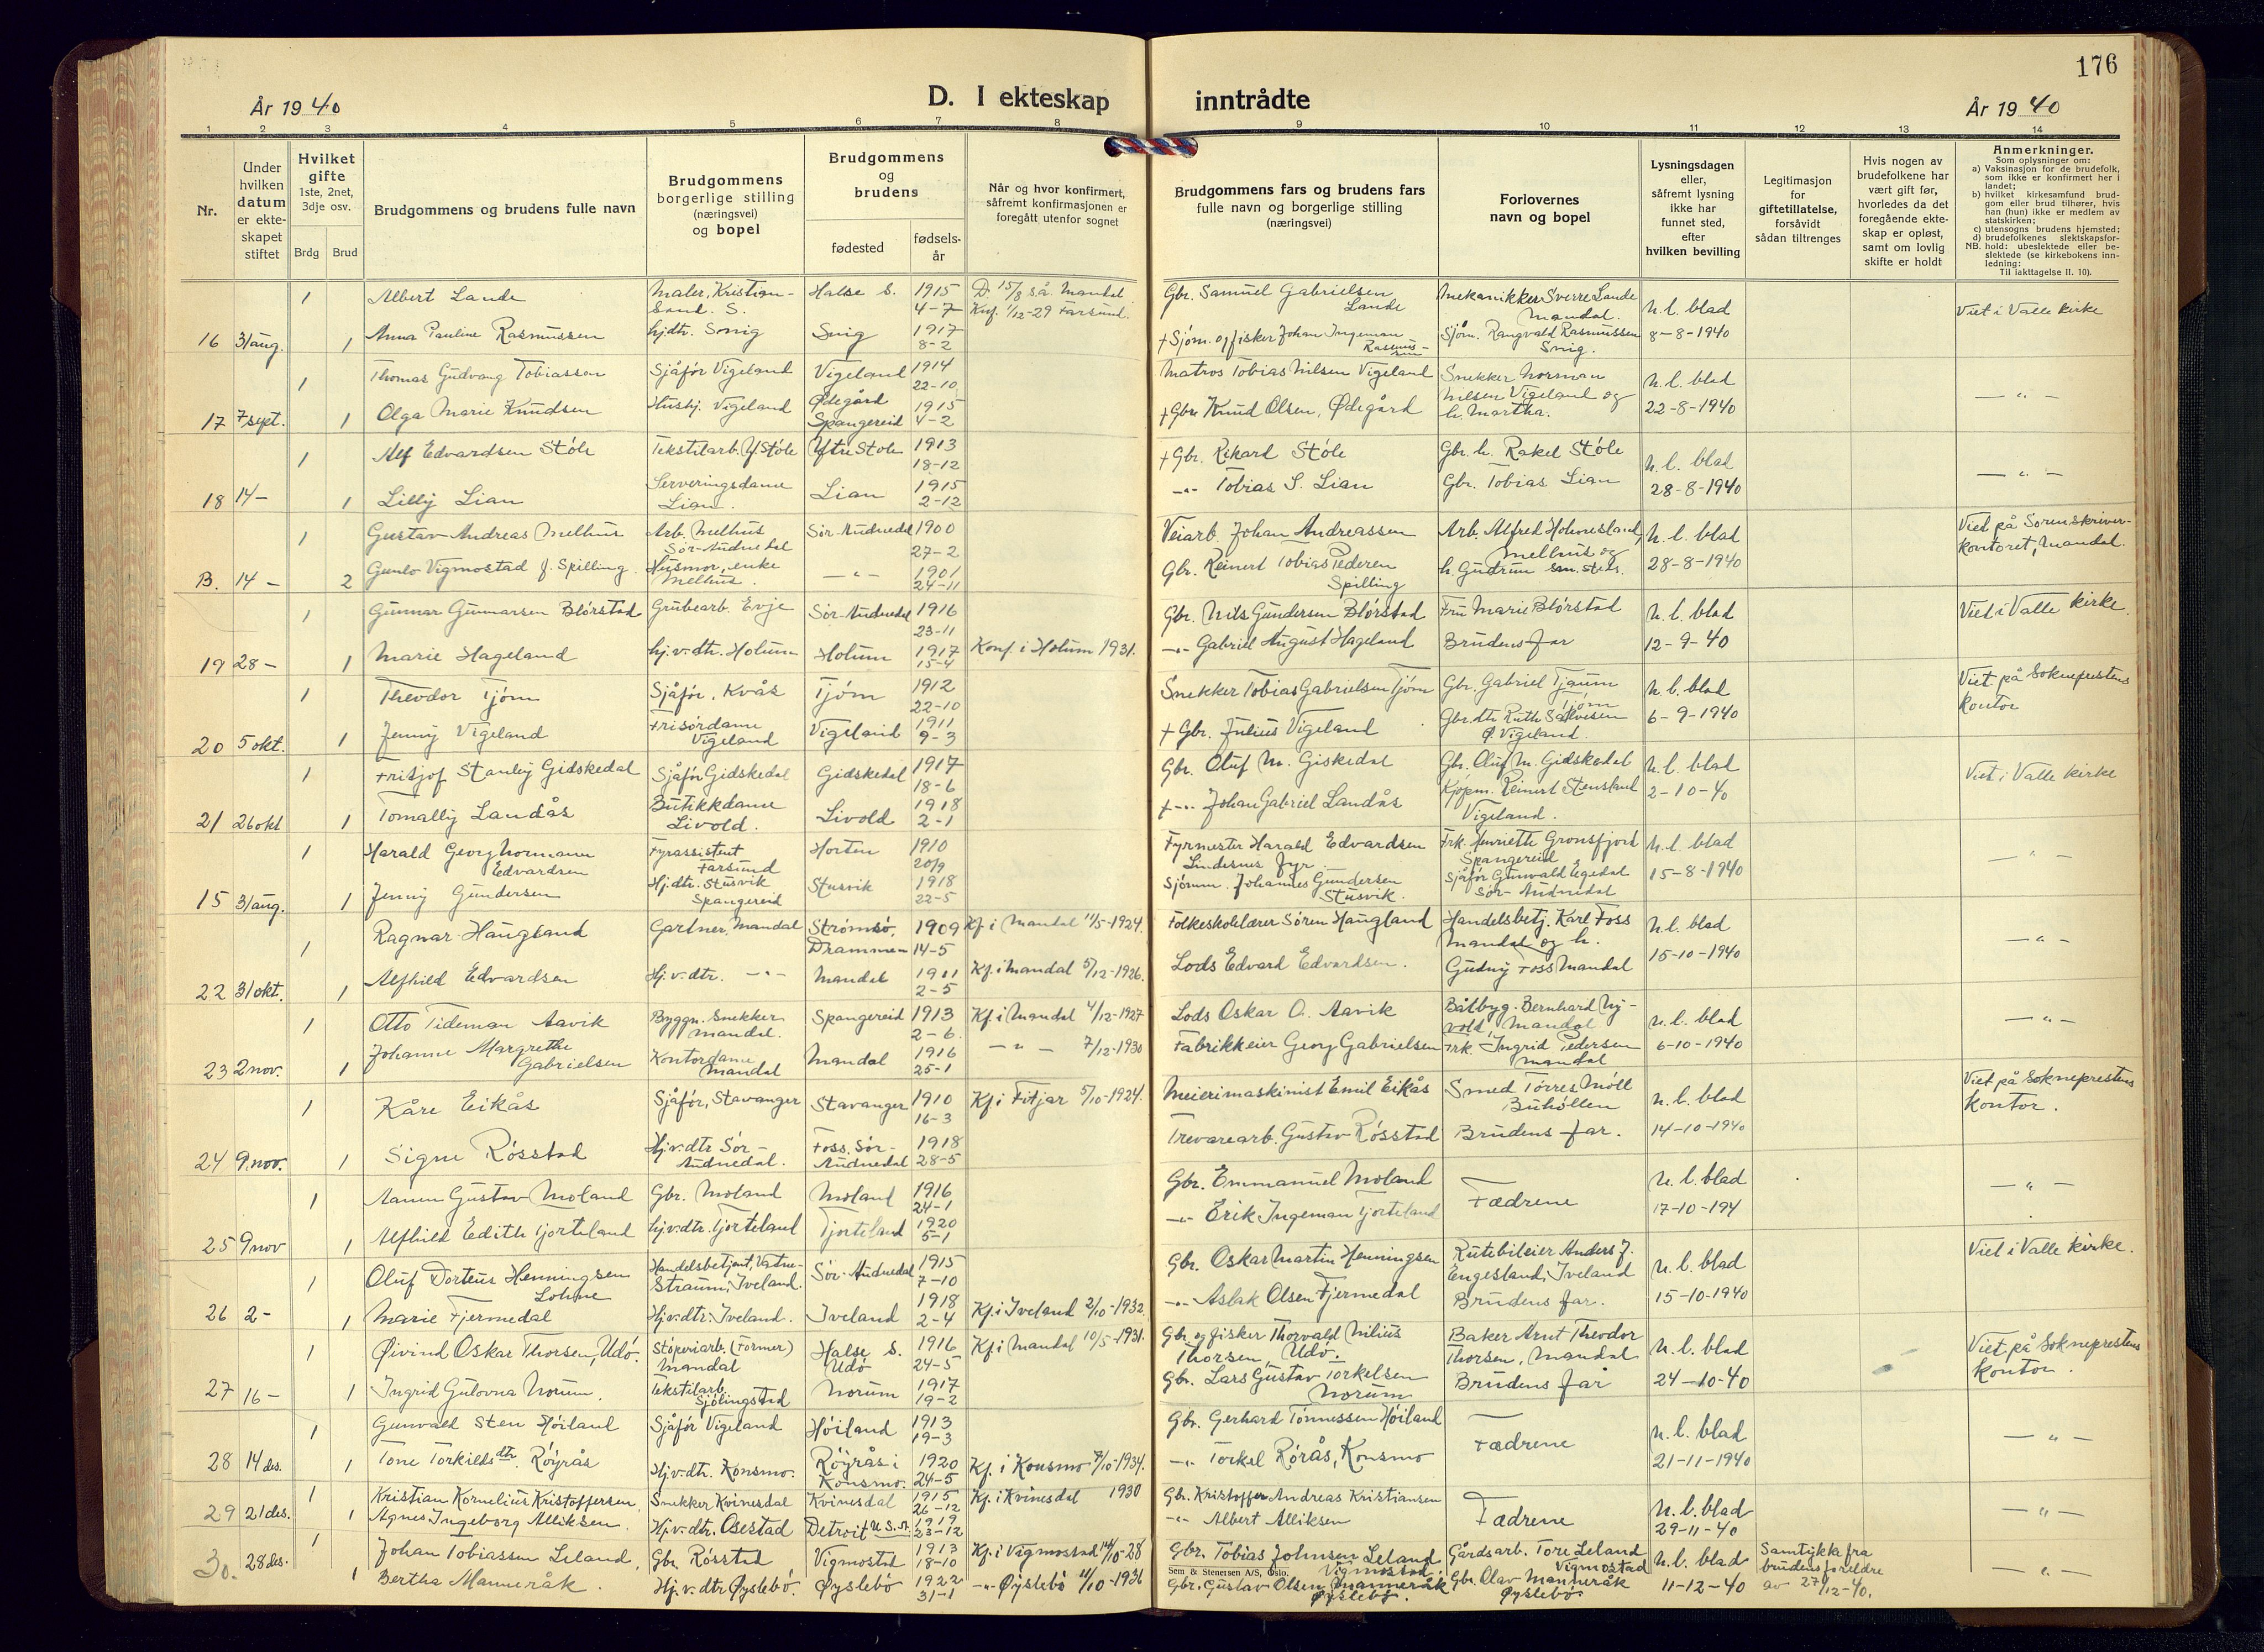 176
År 1940
D. I ekteskap inntrådte
År 1940
1 2 3 4 5 6 7 8 9 10 11 12 13 14
Nr.
Under hvilken datum er ekteskapet stiftet
Hvilket gifte 1ste, 2net, 3dje osv.
Brdg Brud
Brudgommens og brudens fulle navn
Brudgommens borgerlige stilling (næringsvei) og bopel
Brudgommens og brudens
fødested
fødselsår
Når og hvor konfirmert, såfremt konfirmasjonen er foregått utenfor sognet
Brudgommens fars og brudens fars fulle navn og borgerlige stilling (næringsvei)
Forlovernes navn og bopel
Lysningsdagen eller, såfremt lysning ikke har funnet sted, efter hvilken bevilling
Legitimasjon for giftetillatelse, forsåvidt sådan tiltrenges
Hvis nogen av brudefolkene har vært gift før, hvorledes da det foregående ekteskap er opløst, samt om lovlig skifte er holdt
Anmerkninger.
Som oplysninger om:
a) Vaksinasjon for de brudefolk, som ikke er konfirmert her i landet;
b) hvilket kirkesamfund brudgom eller brud tilhører, hvis han (hun) ikke er medlem av statskirken;
c) utensogns brudens hjemsted;
d) brudefolkenes slektskapsforhold: ubeslektede eller beslektede (se kirkebokens innledning:
NB. Til iakttagelse II. 10).
1 Albert Lande Maler, Kristiansand. S. Halse s. 1915 4-7 D. 15/8 s.å. Mandal Gbr. Samuel Gabrielsen Lande Mekanikker Sverre Lande Mandal. n.l. blad Viet i Valle kirke
16 31 aug. 1 Anna Pauline Rasmussen hj.dtr. Snig Snig 1917 8-2 Knf. 1/12-29 Farsund. + Sjøm. og fisker Johan Ingeman Rasmussen Sjøm. Rangvald Rasmussen Snig. 8-8-1940
1 Thomas Gudvang Tobiassen Sjåfør Vigeland Vigeland 1914 22-10 Matros Tobias Nilsen Vigeland Snekker Norman Nilsen Vigeland og n.l. blad — " —
17 7 sept. 1 Olga Marie Knudsen Hushj. Vigeland Ødegård Spangereid 1915 4-2 + Gbr. Knud Olsen, Ødegård h. Martha. 22-8-1940
1 Alf Edvardsen Støle Tekstilarb. Y. Støle Ytre Støle 1913 18-12 + Gbr. Rikard Støle Gbr. h. Rakel Støle n.l. blad — " —
18 14 - 1 Lilly Lian Serveringsdame Lian. Lian 1915 2-12 — " — Tobias S. Lian Gbr. Tobias Lian 28-8-1940
1 Gustav Andreas Melhus Arb. Melhus Sør-Audnedal Sør-Audnedal 1900 27-2 Veiarb. Johan Andreassen Arb. Alfred Holmesland, Melhus og n.l. blad Viet på Sorenskriverkontoret, Mandal.
B. 14 - 2 Gunlo Vigmostad f. Spilling. Husmor, enke Melhus. — " — 1901 24-11 Gbr. Reinert Tobias Pedersen Spilling h. Gudrun sm. steds. 28-8-1940
1 Gunnar Gunnarsen Blørstad Grubearb. Evje Sør-Audnedal 1916 23-11 Gbr. Nils Gundersen Blørstad Fru Marie Blørstad n.l. blad Viet i Valle kirke.
19 28 - 1 Marie Hageland hj.v.dtr. Holum Holum 1917 15-4 Konf. i Holum 1931. — " — Gabriel August Hageland Brudens far 12-9-40
1 Theodor Tjøm Sjåfør, Kvås Tjøm 1912 22-10 Snekker Tobias Gabrielsen Tjøm Gbr. Gabriel Tjaum Tjøm n.l. blad Viet på Sokneprestens kontor
20 5 okt. 1 Jenny Vigeland Frisørdame Vigeland Vigeland 1911 9-3 + Gbr. Julius Vigeland Gbr.dtr. Ruth Salvesen Ø. Vigeland. 6-9-1940
1 Fritjof Stanley Gidskedal Sjåfør Gidskedal Gidskedal 1917 18-6 Gbr. Oluf M. Giskedal Gbr. Oluf M. Gidskedal n.l. blad Viet i Valle kirke
21 26 okt 1 Tomally Landås Butikkdame Livold. Livold 1918 2-1 + — " — Johan Gabriel Landås Kjøpm. Reinert Stensland Vigeland. 2-10-40
1 Harald Georg Normann Edvardsen Fyrassistent Farsund Horten 1910 20/9 Fyrmester Harald Edvardsen Lindesnes fyr. Frk. Henriette Grønsfjord Spangereid n.l. blad — " —
15 31 aug. 1 Jenny Gundersen Hj.dtr. Stusvik Spangereid Stusvik 1918 22-5 Sjømm. Johannes Gundersen Stusvik. Sjåfør Gunvald Egedal Sør-Audnedal 15-8-1940
1 Ragnar Haugland Gartner, Mandal Strømsø, Drammen 1909 14-5 Kf. i Mandal 11/5-1924. Folkeskolelærer Søren Haugland Handelsbetj. Karl Foss Mandal og h. n.l. blad — " —
22 31 okt. 1 Alfhild Edvardsen Hj.v.dtr. — " — Mandal 1911 2-5 Kf. i Mandal 5/12-1926. Lods Edvard Edvardsen. Gudny Foss Mandal 15-10-1940
1 Otto Tideman Aavik Byggn. Snekker Mandal. Spangereid 1913 2-6 Kf. i Mandal 4/12-1927 Lods Oskar O. Aavik Båtbyg. Bernhard Nyvold, Mandal n.l. blad — " —
23 2 nov. 1 Johanne Margrethe Gabrielsen Kontordame Mandal Mandal 1916 25-1 — " — 7/12-1930 Fabrikkeier Georg Gabrielsen Frk. Ingrid Pedersen Mandal 6-10-1940
1 Kåre Eikås Sjåfør, Stavanger Stavanger 1910 16-3 Kf. i Fitjar 5/10-1924. Meierimaskinist Emil Eikås Smed Tørres Møll Buhøllen n.l. blad Viet på Sokneprestens kontor.
24 9. nov. 1 Signe Røsstad Hj.v.dtr Sør-Audnedal. Foss, Sør-Audnedal 1918 28-5 Trevarearb. Gustav Røsstad Brudens far. 14-10-1940
1 Aanen Gustav Moland Gbr. Moland Moland 1916 24-1 Gbr. Emmanuel Moland Fædrene n.l. blad — " —
25 9 nov 1 Alfhild Edith Tjorteland hj.v.dtr. Tjorteland Tjorteland 1920 5-1 — " — Erik Ingeman Tjorteland 17-10-194
1 Oluf Dorteus Henningsen Lohne Handelsbetjent, Vatnestraum, Iveland. Sør-Audnedal 1915 7-10 Gbr. Oskar Martin Henningsen Rutebileier Anders J. Engesland, Iveland n.l. blad Viet i Valle kirke.
26 2 - 1 Marie Fjermedal Hj.v.dtr. Iveland. Iveland 1918 2-4 Kf. i Iveland 2/10-1932. — " — Aslak Olsen Fjermedal Brudens far. 15-10-1940
1 Øivind Oskar Thorsen, Udø. Støperiarb. (Former) Mandal Halse s. Udø 1916 24-5 Kf. i Mandal 10/5-1931. Gbr. og fisker Thorvald Nilius Thorsen, Udø. Baker Arnt Theodor Thorsen, Mandal n.l. blad Viet på Sokneprestens kontor.
27 16 - 1 Ingrid Gulovna Norum. Tekstilarb. Sjølingstad Norum 1917 19-2 Gbr. Lars Gustav Torkelsen Norum Brudens far 24-10-40
1 Gunvald Sten Høiland Sjåfør Vigeland Høiland 1913 19-3 Gbr. Gerhard Tønnessen Høiland Fædrene n.l. blad — " —
28 14 des. 1 Tone Torkildsdtr. Røyrås Hj.v.dtr. Konsmo. Røyrås i Konsmo. 1920 24-5 Kf. i Konsmo 7/10-1934. — " — Torkel Rørås, Konsmo 21-11-1940
1 Kristian Kornelius Kristoffersen, Snekker Kvinesdal Kvinesdal 1915 26-12 Kf. i Kvinesdal 1930 Gbr. Kristoffer Andreas Kristiansen Fædrene n.l. blad — " —
29 21 des. 1 Agnes Ingeborg Alliksen. Hj.v.dtr. Osestad Detroit U.S.A. 1919 23-12 — " — Albert Alliksen 29-11-40
1 Johan Tobiassen Leland, Gbr. Røsstad Vigmostad 1913 18-10 Kf. i Vigmostad 14/10-28 Gbr. Tobias Johnsen Leland Vigmostad. Gårdsarb. Tore Leland Vigmostad n.l. blad Samtykke fra brudens foreldre av 27/12-40. — " —
30. 28 des. 1 Bertha Manneråk. Hj.v.dtr Øyslebø. Øyslebø 1922 31-1 — " — Øyslebø 11/10-1936 Gbr. Gustav Olsen Manneråk Øyslebø. Gbr. Olav Manneråk Øyslebø. 11-12-40
Sem & Stenersen A/S, Oslo.